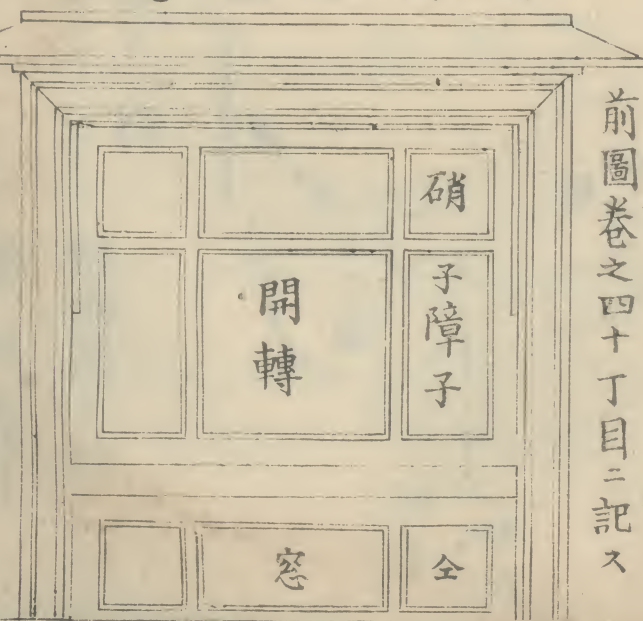 前圖卷之四十丁目ニ記ス
硝
子障子
開轉
仝
窓